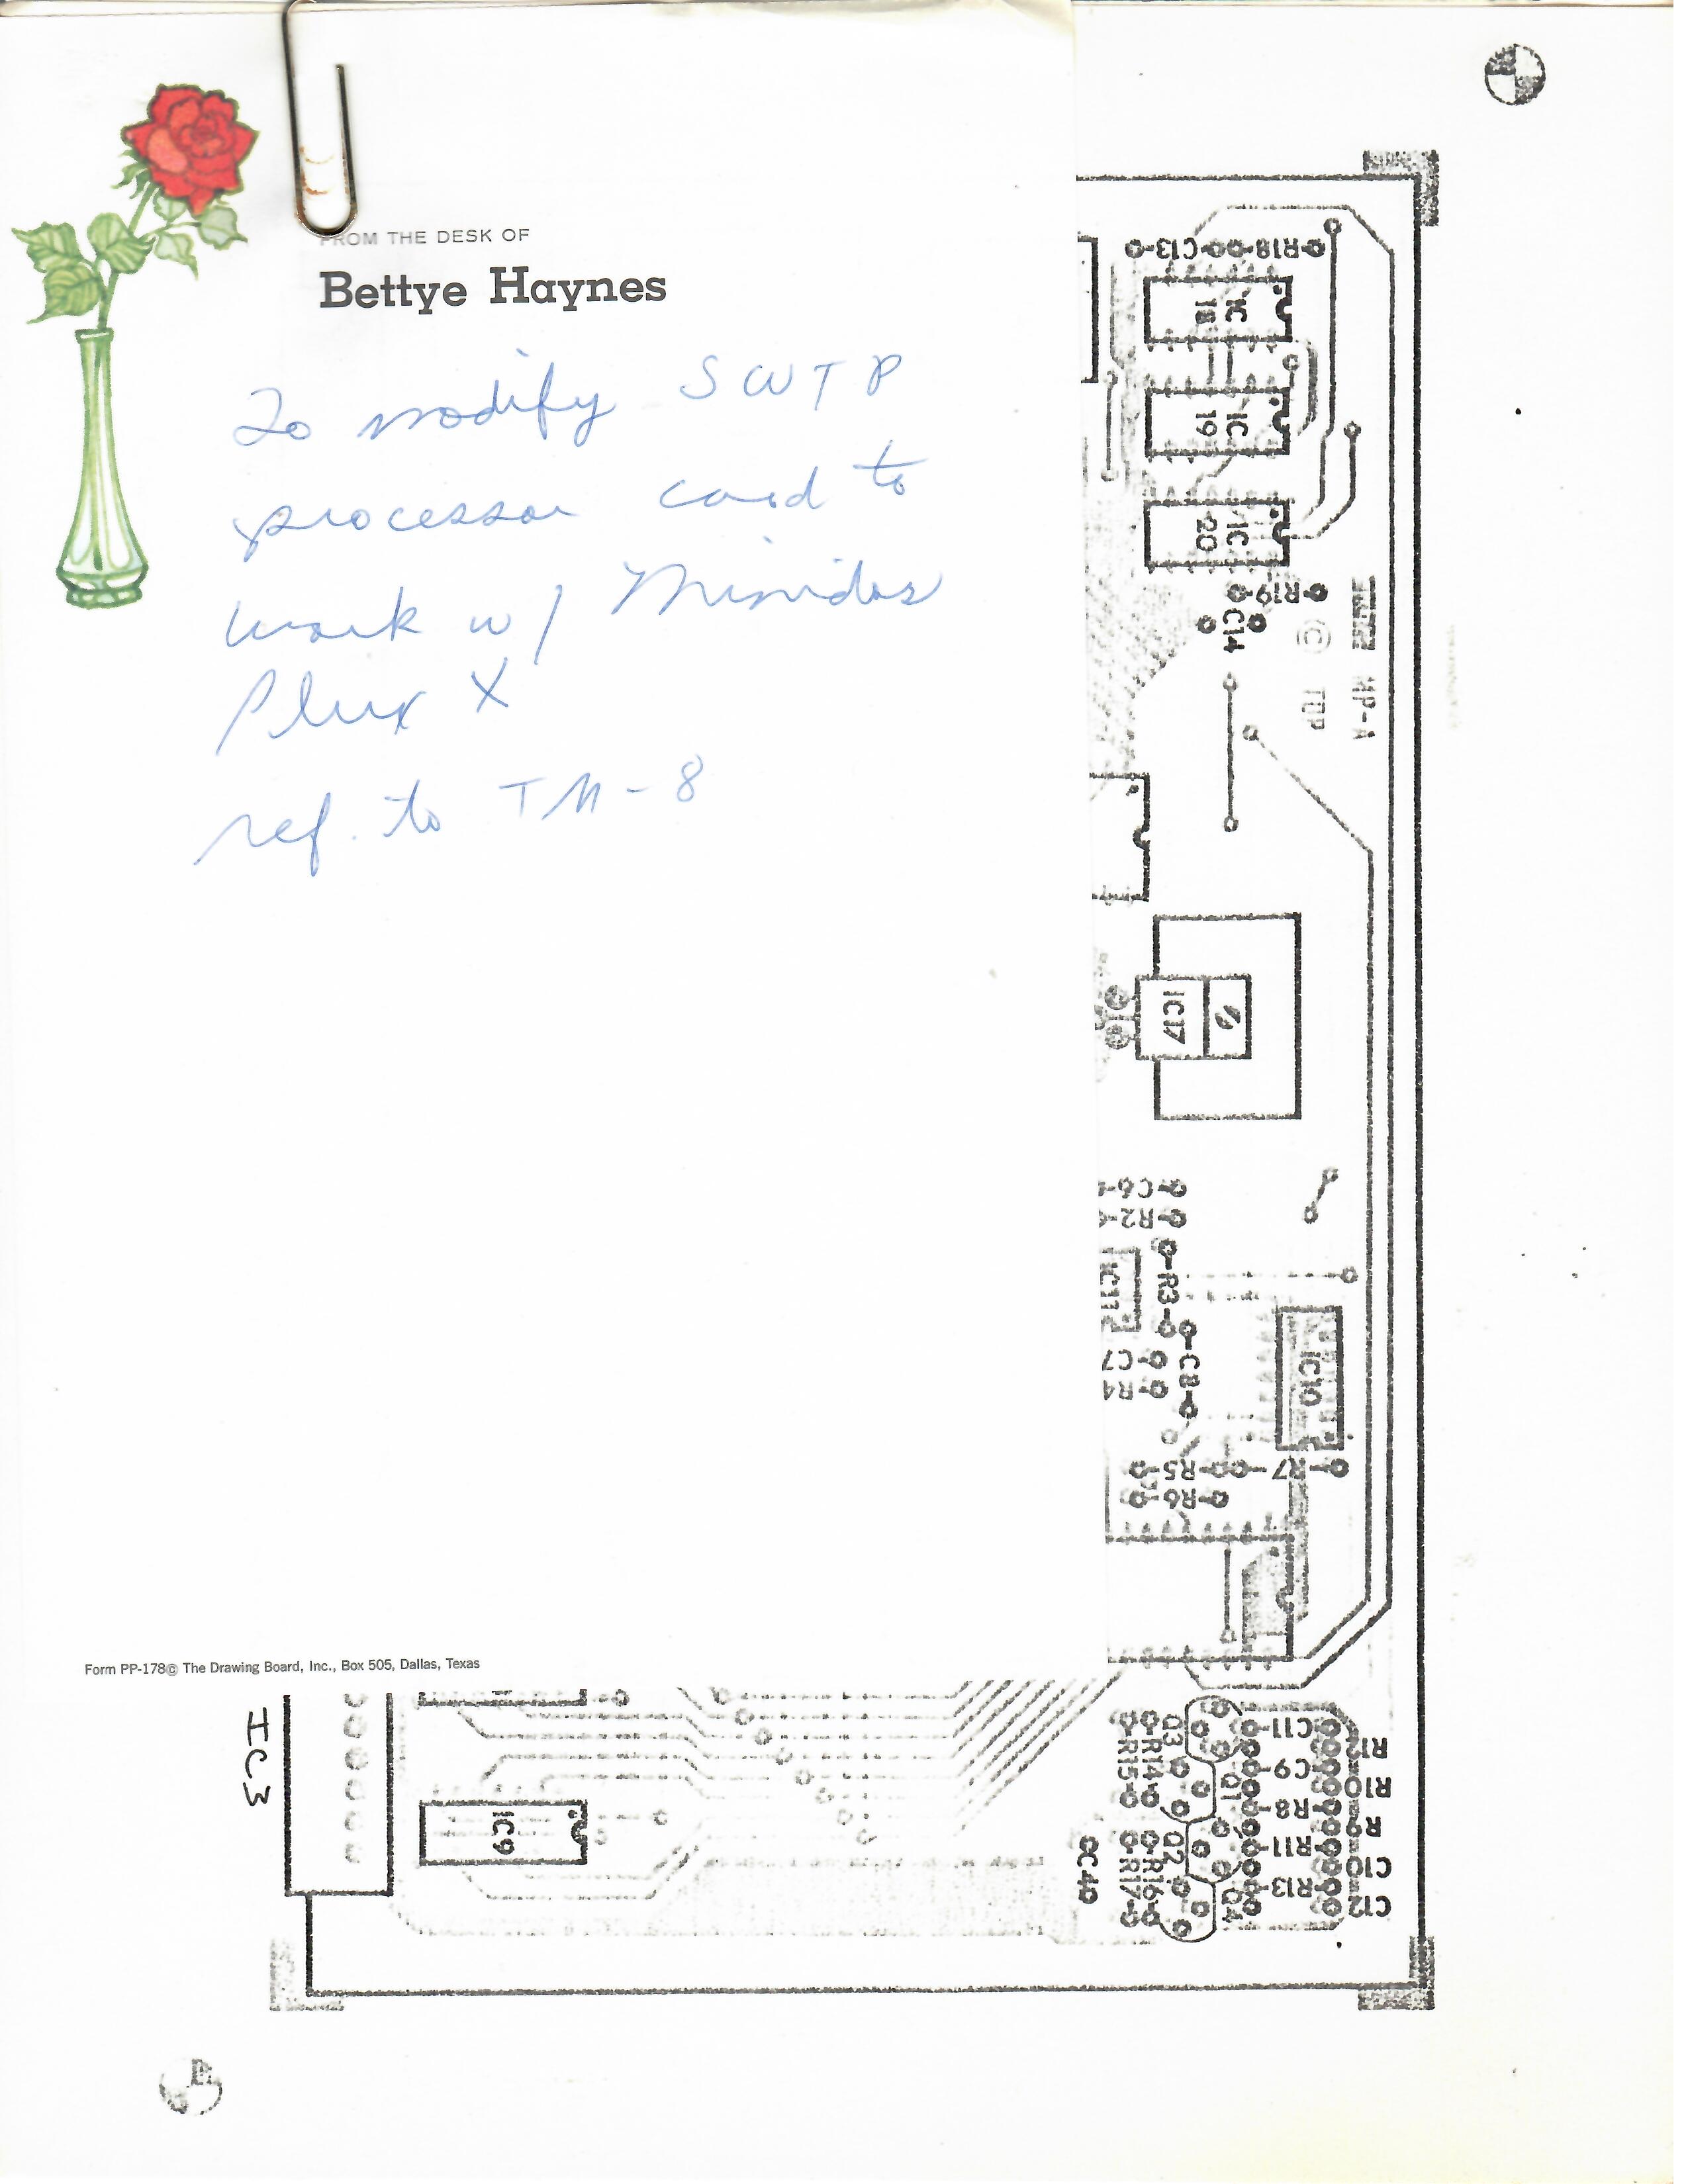 FROM THE DESK OF
Bettye Haynes
To modify SWTP
processor card to
work w/ Minidos
Plux X
ref. to TM-8
Form PP-178© The Drawing Board, Inc., Box 505, Dallas, Texas
R18 C13
IC 18
IC 19
IC 20
R19
C14
© TOP
MP-A
IC17
C6
R2
R3
C8
C7
R4
IC10
R5 R7
R6
IC3
IC9
C4
R15 R14 Q3 C11 R12
C9 R10
Q1 R8
R9
R17 R16 Q2 R11 C10
Q4 R13 C12